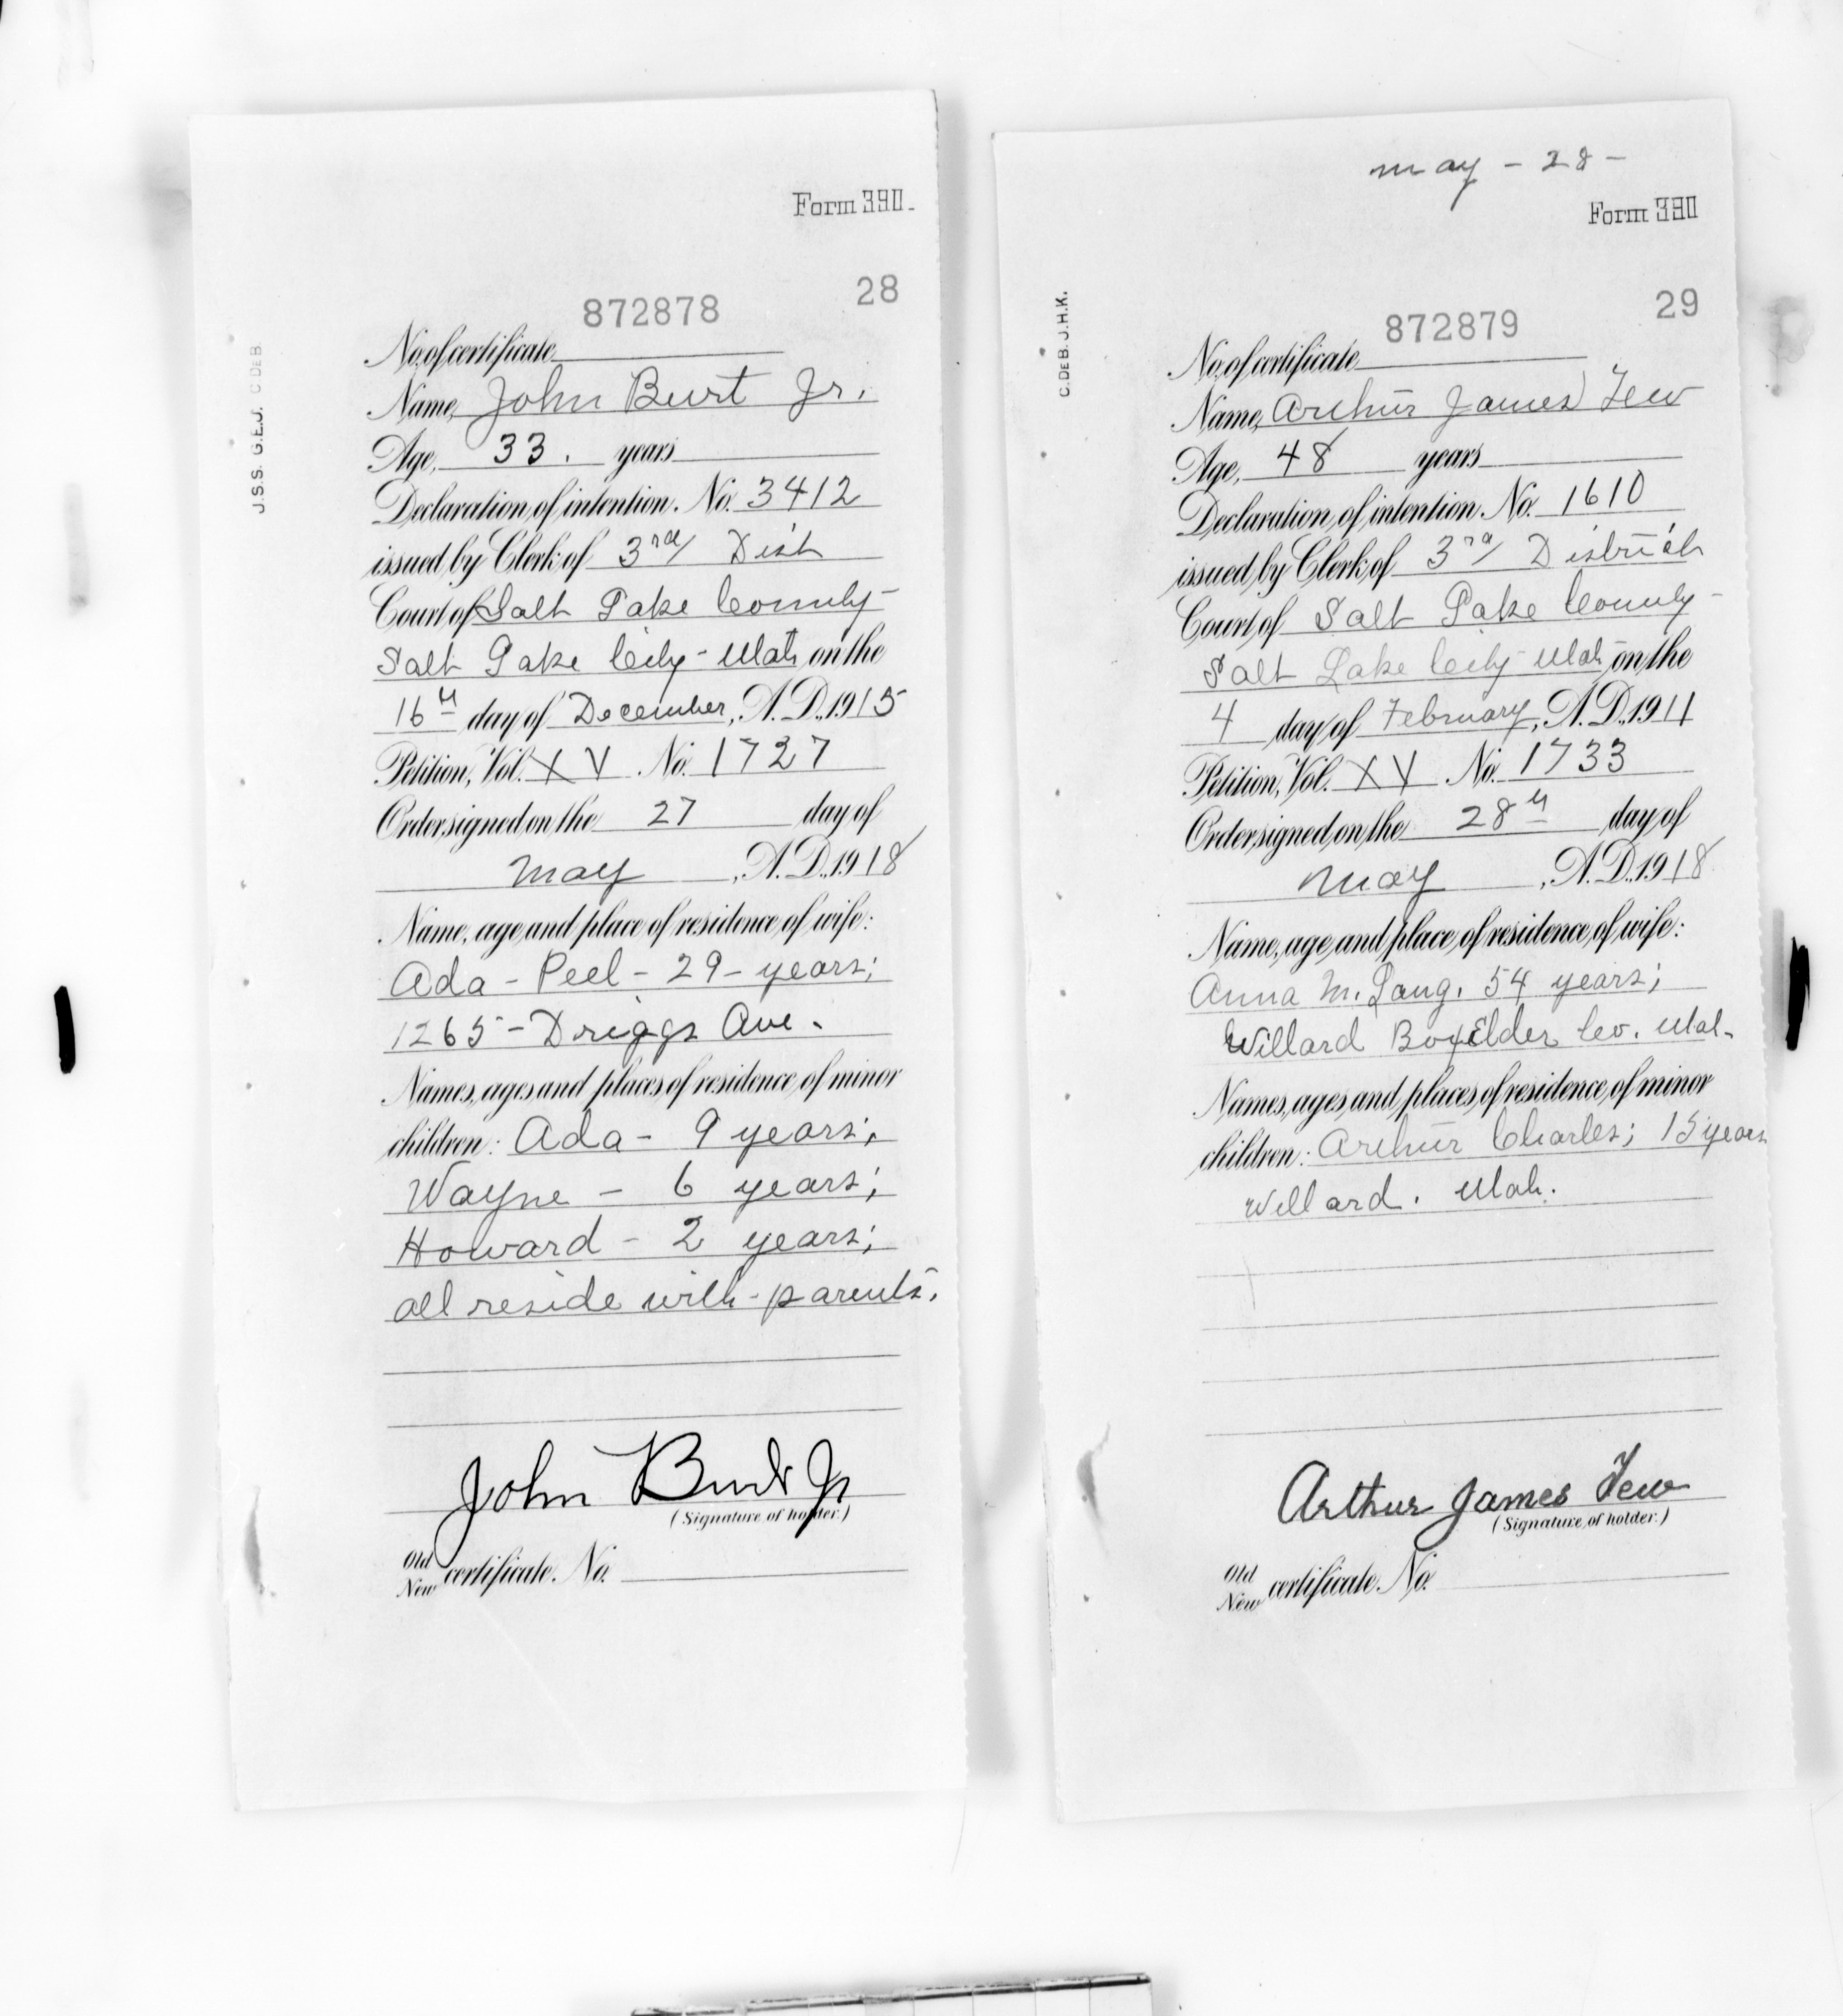 Form 390.
28
872878
No. of certificate
Name, John Burt Jr.
Age, 33. years
Declaration of intention. No. 3412
issued by Clerk of 3rd Dist
Court of Salt Lake County
Salt Lake City - Utah on the
16th day of December, A.D., 1915
Petition, Vol. XV No. 1727
Order signed on the 27 day of
May, A.D., 1918
Name, age and place of residence of wife:
Ada - Peel - 29 - years;
1265 - Driggs Ave.
Names, ages and places of residence of minor
children: Ada - 9 years;
Wayne - 6 years;
Howard - 2 years;
all reside with - parents.
John Burt Jr
(Signature of holder.)
Old
New certificate. No.
J.S.S. G.E.J. C DE B
May - 28 -
Form 390
29
872879
No. of certificate
Name, Arthur James Tew
Age, 48 years
Declaration of intention. No. 1610
issued by Clerk of 3rd District
Court of Salt Lake County -
Salt Lake City - Utah on the
4 day of February, A.D., 1911
Petition, Vol. XV No. 1733
Order signed on the 28th day of
May, A.D., 1918
Name, age and place of residence of wife:
Anna M. Lang. 54 years;
Willard Box Elder Co. Utah.
Names, ages and places of residence of minor
children: Arthur Charles; 15 years
Willard. Utah.
Arthur James Tew
(Signature of holder.)
Old
New certificate. No.
C. DE B. J.H.K.